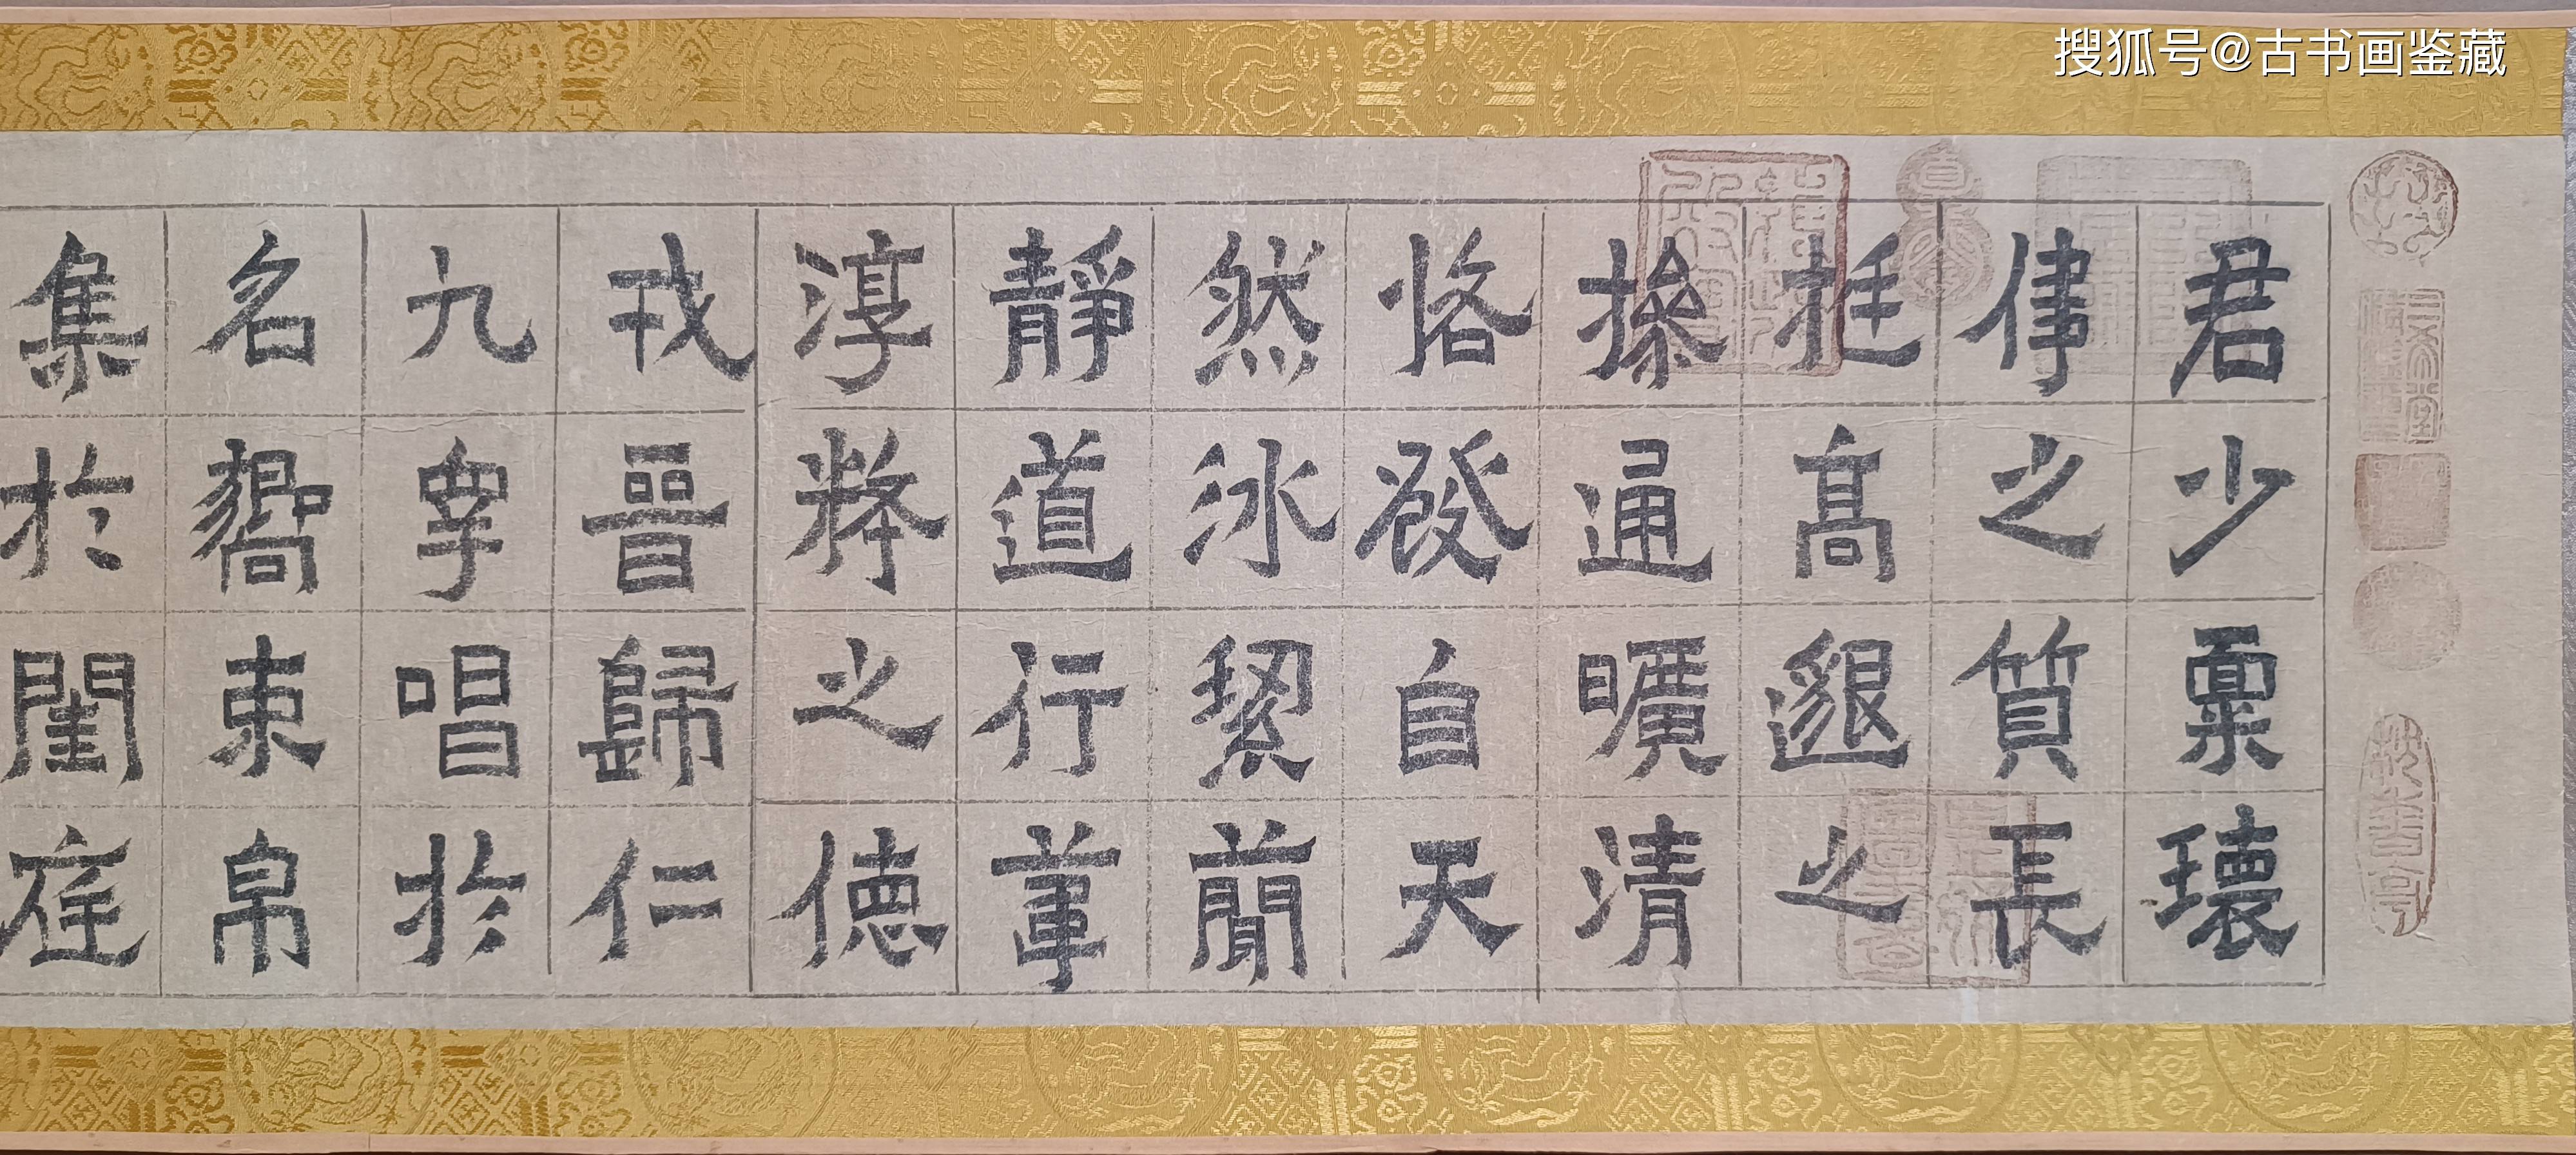 搜狐号@古书画鉴藏
君少稟瓌
偉之質長
挺高邈之
操通曠清
恪發自天
然冰絜簡
靜道行葦
淳粹之德
戎晉歸仁
九皋唱於
名嚮束帛
集於閨庭